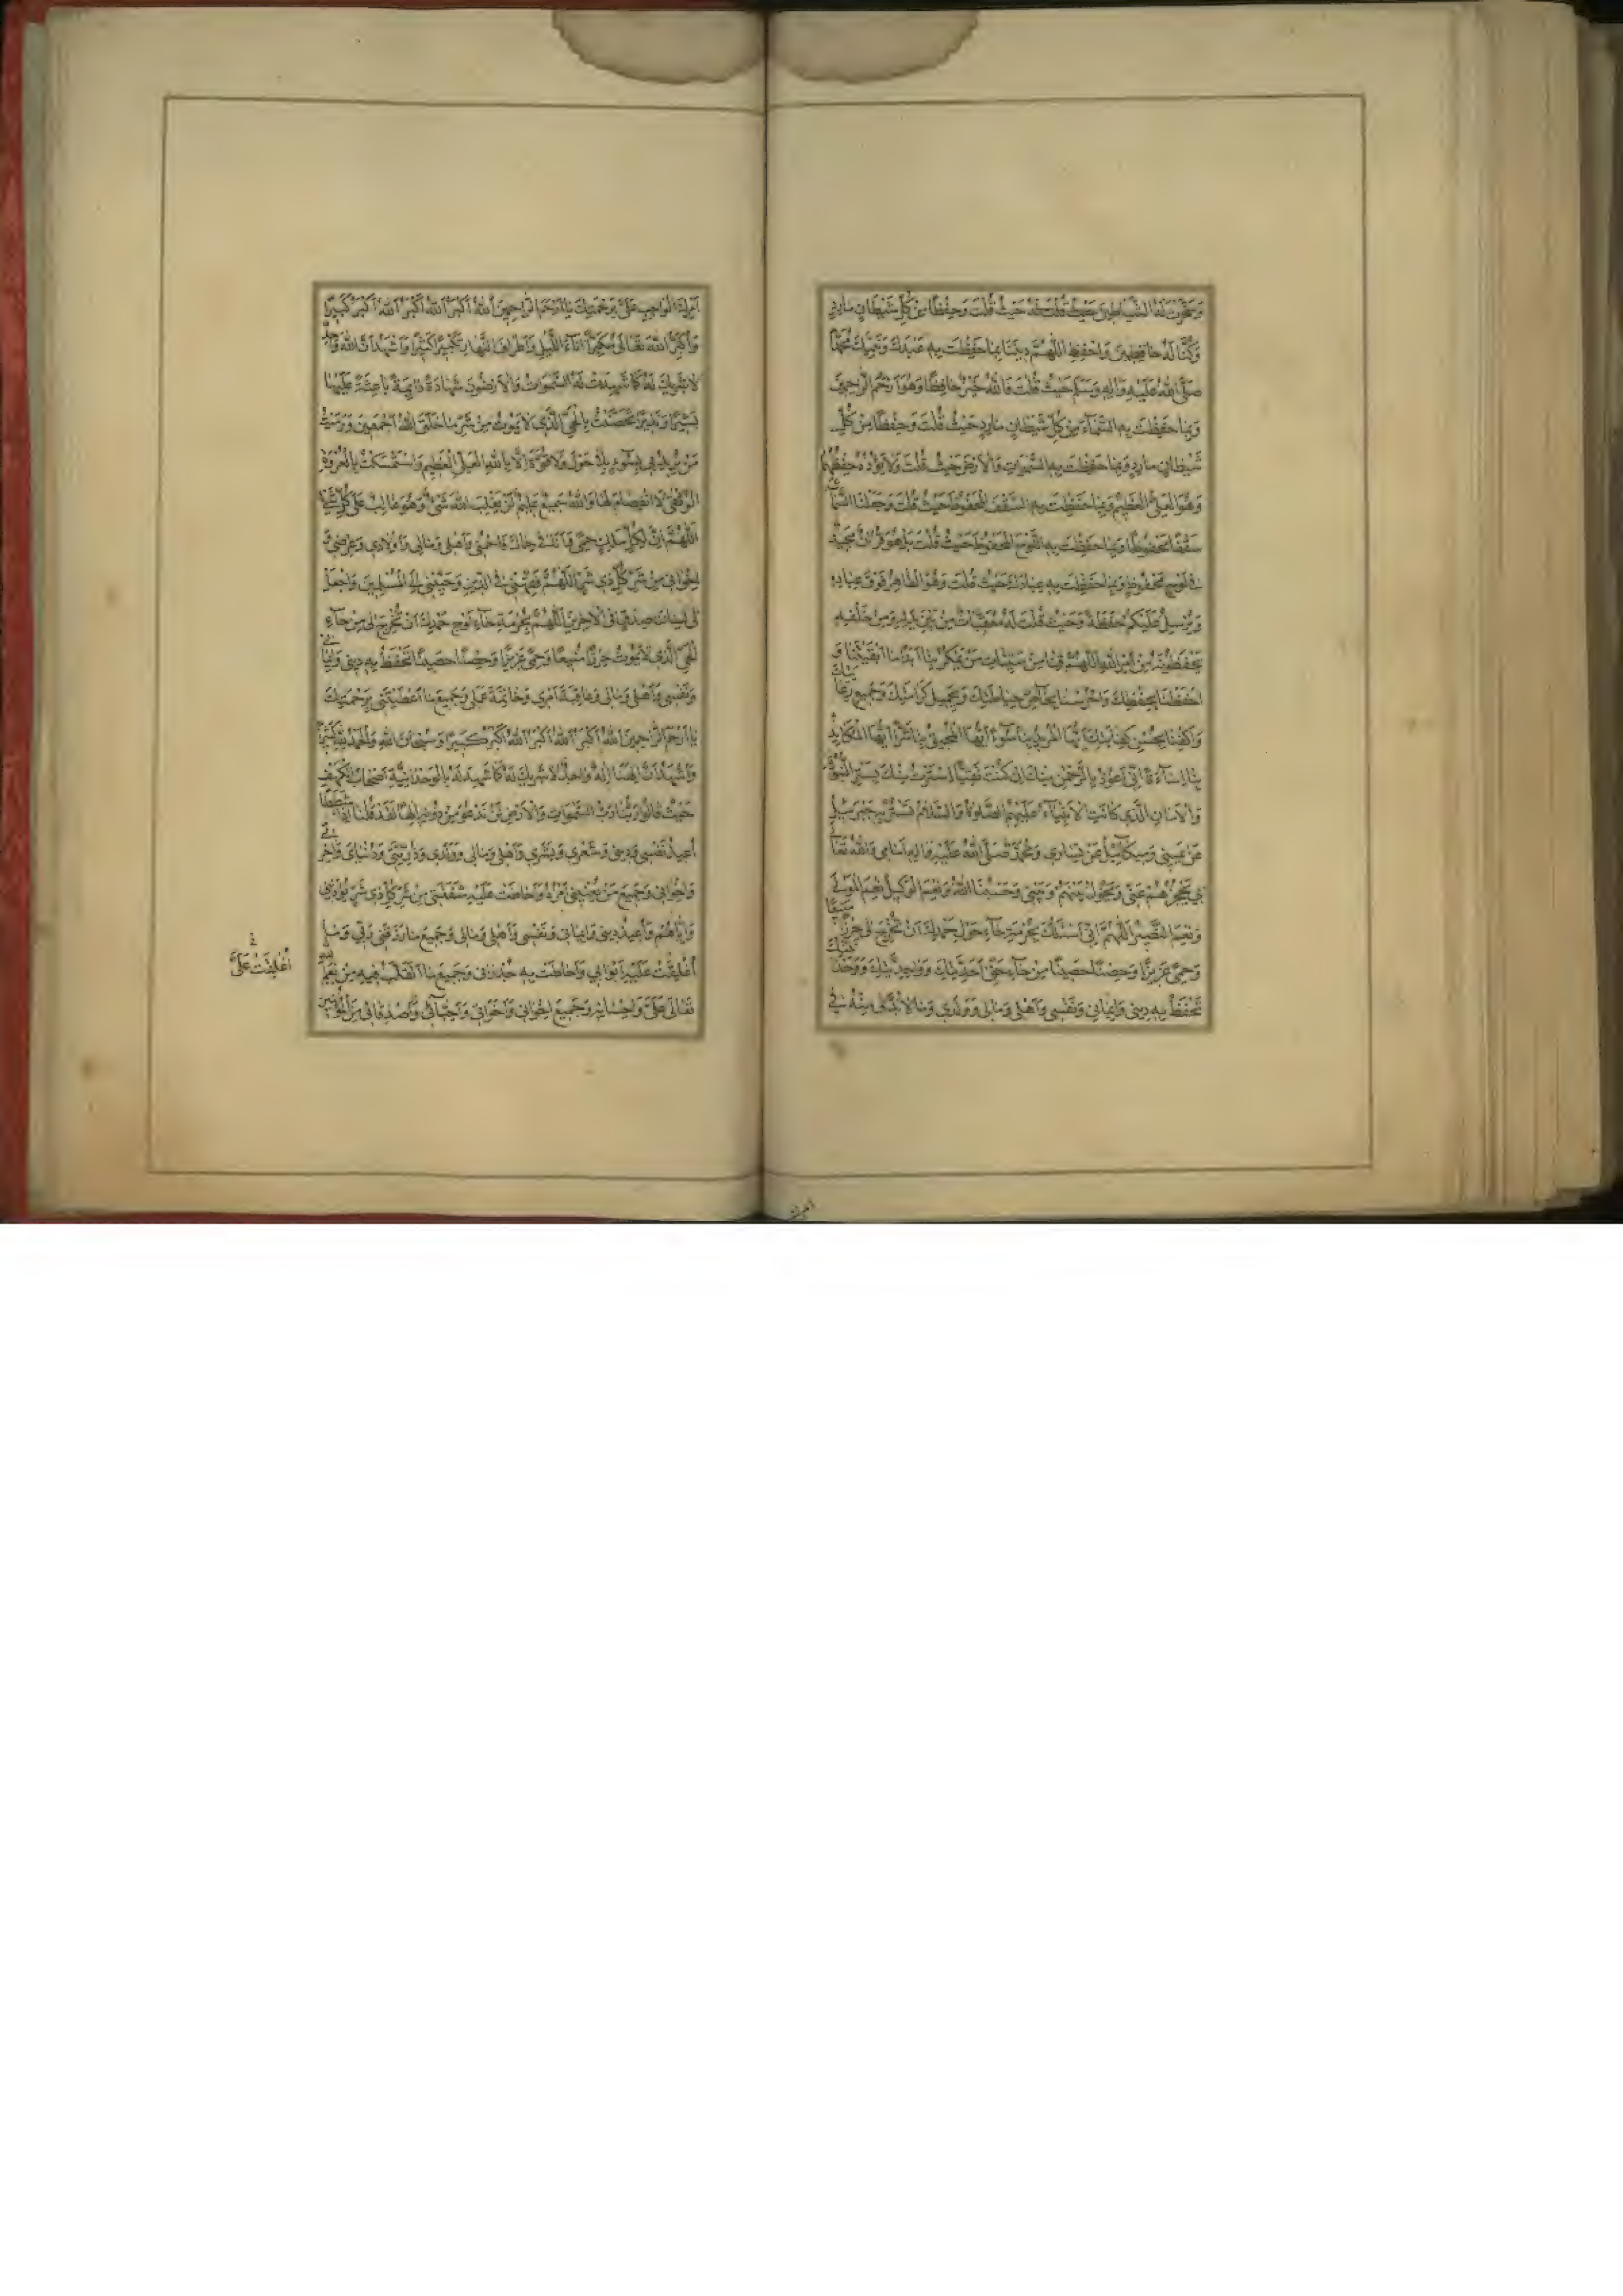 وَسَخَّرْتَ لَهُ الشَّيَاطِينَ حَيْثُ قُلْتَ وَحِفْظًا مِنْ كُلِّ شَيْطَانٍ مَارِدٍ
وَكُنَّا لَهُ حَافِظِينَ وَاحْفَظِ اللَّهُمَّ دِينَنَا بِمَا حَفِظْتَ بِهِ عَبْدَكَ وَنَبِيَّكَ مُحَمَّدًا
صَلَّى اللهُ عَلَيْهِ وَآلِهِ وَسَلَّمَ حَيْثُ قُلْتَ فَاللهُ خَيْرٌ حَافِظًا وَهُوَ أَرْحَمُ الرَّاحِمِينَ
وَبِمَا حَفِظْتَ بِهِ السَّمَاءَ مِنْ كُلِّ شَيْطَانٍ مَارِدٍ حَيْثُ قُلْتَ وَحِفْظًا مِنْ كُلِّ
شَيْطَانٍ مَارِدٍ وَبِمَا حَفِظْتَ بِهِ السَّمٰوَاتِ وَالْاَرْضَ حَيْثُ قُلْتَ وَلَا يَؤُدُهُ حِفْظُهُمَا
وَهُوَ الْعَلِيُّ الْعَظِيمُ وَبِمَا حَفِظْتَ بِهِ السَّقْفَ الْمَحْفُوظَ حَيْثُ قُلْتَ وَجَعَلْنَا السَّمَاءَ
سَقْفًا مَحْفُوظًا وَبِمَا حَفِظْتَ بِهِ اللَّوْحَ الْمَحْفُوظَ حَيْثُ قُلْتَ بَلْ هُوَ قُرْآنٌ مَجِيدٌ
فِي لَوْحٍ مَحْفُوظٍ وَبِمَا حَفِظْتَ بِهِ عِبَادَكَ حَيْثُ قُلْتَ وَهُوَ الْقَاهِرُ فَوْقَ عِبَادِهِ
وَيُرْسِلُ عَلَيْكُمْ حَفَظَةً وَحَيْثُ قُلْتَ لَهُ مُعَقِّبَاتٌ مِنْ بَيْنِ يَدَيْهِ وَمِنْ خَلْفِهِ
يَحْفَظُونَهُ مِنْ أَمْرِ اللهِ اللَّهُمَّ قِنَا مِنْ سَيِّئَاتِ مَنْ يَمْكُرُ بِنَا أَبَدًا مَا أَبْقَيْتَنَا وَ
احْفَظْنَا بِحِفْظِكَ وَاحْرُسْنَا حِيَاطَتِكَ وَبِجَمِيلِ كَرَامَتِكَ وَجَمِيعِ رِعَايَتِكَ
وَاكْفِنَا بِحُسْنِ كِفَايَتِكَ أَيُّهَا الْمُرِيدُ بِنَا سُوءً أَيُّهَا الْمُحِيقُ بِنَا شَرًّا أَيُّهَا الْمُكَايِدُ
بِنَا إِسَاءَةً إِنِّي أَعُوذُ بِالرَّحْمٰنِ مِنْكَ إِنْ كُنْتَ تَقِيًّا اسْتَتَرْتُ مِنْكَ بِسِتْرِ النُّبُوَّةِ
وَالْأَمَانِ الَّذِي كَانَتِ الْأَنْبِيَاءُ عَلَيْهِمُ الصَّلَوةُ وَالسَّلَامُ تَسْتَتِرُ بِهِ جَبْرَئِيلُ
عَنْ يَمِينِي وَمِيكَائِيلُ عَنْ يَسَارِي وَمُحَمَّدٌ صَلَّى اللهُ عَلَيْهِ وَآلِهِ أَمَامِي وَاللهُ تَعَالَى
بِي يَحْجُزُهُمْ عَنِّي وَيَحُولُ بَيْنَهُمْ وَبَيْنِي وَحَسْبُنَا اللهُ وَنِعْمَ الْوَكِيلُ نِعْمَ الْمَوْلَى
وَنِعْمَ النَّصِيرُ اللّٰهُمَّ إِنِّي أَسْئَلُكَ بِحُرْمَةِ حَاءِ حَوْلِ حَمْدِكَ أَنْ تُخْرِجَ لِي حِرْزًا مَنِيعًا
وَحِمًى عَزِيزًا وَحِصْنًا حَصِينًا مِنْ حَاءِ حَتَّى أَحَدِيَّتِكَ وَوَاحِدِيَّتِكَ
تَحْفَظُ بِهِ دِينِي وَإِيمَانِي وَنَفْسِي وَأَهْلِي وَمَالِي وَوَلَدِي وَمَا لَا بُدَّ لِي مِنْهُ فِي
الْوَاجِبِ عَلَيَّ بِرَحْمَتِكَ يَا أَرْحَمَ الرَّاحِمِينَ اللهُ أَكْبَرُ اللهُ أَكْبَرُ اللهُ أَكْبَرُ كَبِيرًا
وَأُكَبِّرُ اللهَ تَعَالَى مُكَبِّرًا آنَاءَ اللَّيْلِ وَأَطْرَافَ النَّهَارِ تَكْبِيرًا كَثِيرًا وَأَشْهَدُ أَنَّ اللهَ وَاحِدٌ
لَا شَرِيكَ لَهُ كَمَا شَهِدَتْ لَهُ السَّمٰوَاتُ وَالْأَرَضُونَ شَهَادَةً دَائِمَةً بَاعِثَةً عَلَيْهَا
بَشِيرًا وَنَذِيرًا تَحَصَّنْتُ بِالْحَيِّ الَّذِي لَا يَمُوتُ مِنْ شَرِّ مَا خَلَقَ اللهُ أَجْمَعِينَ وَرَمَيْتُ
مَنْ يُرِيدُ بِي بِسُوءٍ بِلَا حَوْلَ وَلَا قُوَّةَ إِلَّا بِاللهِ الْعَلِيِّ الْعَظِيمِ وَاسْتَمْسَكْتُ بِالْعُرْوَةِ
الْوُثْقَى لَا انْفِصَامَ لَهَا وَاللهُ سَمِيعٌ عَلِيمٌ لَنْ يَغْلِبَ اللهَ شَيْءٌ وَهُوَ غَالِبٌ عَلَى كُلِّ شَيْءٍ
اللّٰهُمَّ إِنَّ لِكُلِّ حِمًى وَأَنَا فِي حِمَاكَ فَاحْمِنِي وَأَهْلِي وَمَالِي وَأَوْلَادِي وَعِرْضِي وَ
إِخْوَانِي مِنْ شَرِّ كُلِّ ذِي شَرٍّ اللّٰهُمَّ فَقِّهْنِي فِي الدِّينِ وَحَبِّبْنِي إِلَى الْمُسْلِمِينَ وَاجْعَلْ
لِي لِسَانَ صِدْقٍ فِي الْآخِرِينَ اللّٰهُمَّ بِحُرْمَةِ حَاءِ حَمْدِكَ أَنْ تُخْرِجَ لِي مِنْ حَاءِ
الْحَيِّ الَّذِي لَا يَمُوتُ حِرْزًا مَنِيعًا وَحِمًى عَزِيزًا وَحِصْنًا حَصِينًا تَحْفَظُ بِهِ دِينِي وَإِيمَانِي
وَنَفْسِي وَأَهْلِي وَمَالِي وَعَاقِبَةَ أَمْرِي وَخَاتِمَةَ عَمَلِي وَجَمِيعَ مَا أَعْطَيْتَنِي بِرَحْمَتِكَ
يَا أَرْحَمَ الرَّاحِمِينَ اللهُ أَكْبَرُ اللهُ أَكْبَرُ اللهُ أَكْبَرُ كَبِيرًا وَسُبْحَانَ اللهِ وَالْحَمْدُ لِلّٰهِ كَثِيرًا
وَأَشْهَدُ أَنَّ إِلٰهَنَا إِلٰهٌ وَاحِدٌ لَا شَرِيكَ لَهُ كَمَا شَهِدَ لَهُ بِالْوَحْدَانِيَّةِ أَصْحَابُ الْكَهْفِ
حَيْثُ قَالُوا رَبُّنَا رَبُّ السَّمٰوَاتِ وَالْأَرْضِ لَنْ نَدْعُوَ مِنْ دُونِهِ إِلٰهًا لَقَدْ قُلْنَا إِذًا شَطَطًا
أُعِيذُ نَفْسِي وَدِينِي وَشَعْرِي وَبَشَرِي وَأَهْلِي وَمَالِي وَوَلَدِي وَذُرِّيَّتِي وَدُنْيَايَ وَآخِرَتِي
وَإِخْوَانِي وَجَمِيعَ مَنْ يَعْنِينِي أَمْرُهُ وَأَحَاطَتْ عَلَيْهِ شَفَقَتِي مِنْ شَرِّ كُلِّ ذِي شَرٍّ يُؤْذِينِي
وَإِيَّاهُمْ وَأُعِيذُ دِينِي وَإِيمَانِي وَنَفْسِي وَأَهْلِي وَمَالِي وَجَمِيعَ مَا رَزَقَنِي رَبِّي وَمَا
أُغْلِقَتْ عَلَيْهِ أَبْوَابِي وَأَحَاطَتْ بِهِ جُدْرَانِي وَجَمِيعَ مَا أَتَقَلَّبُ فِيهِ مِنْ نِعَمِ اللهِ
تَعَالَى عَلَيَّ وَإِحْسَانِهِ وَجَمِيعَ إِخْوَانِي وَأَخَوَاتِي وَأَحِبَّائِي وَأَصْدِقَائِي مِنَ الْمُؤْمِنِينَ
أُغْلِقَتْ عَلَيَّ